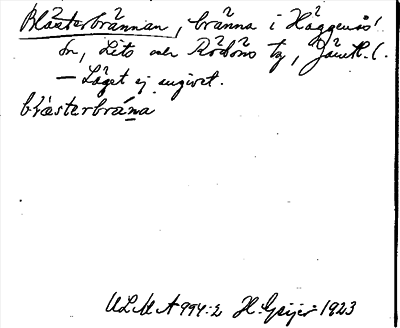 Blästerbrännan, bränna i Häggenås'
sn, Lits och Rödöns tg, Jämtl. l.
— Läget ej angivet.
blästerbräna
ULMA 994:2 H. Geijer 1923